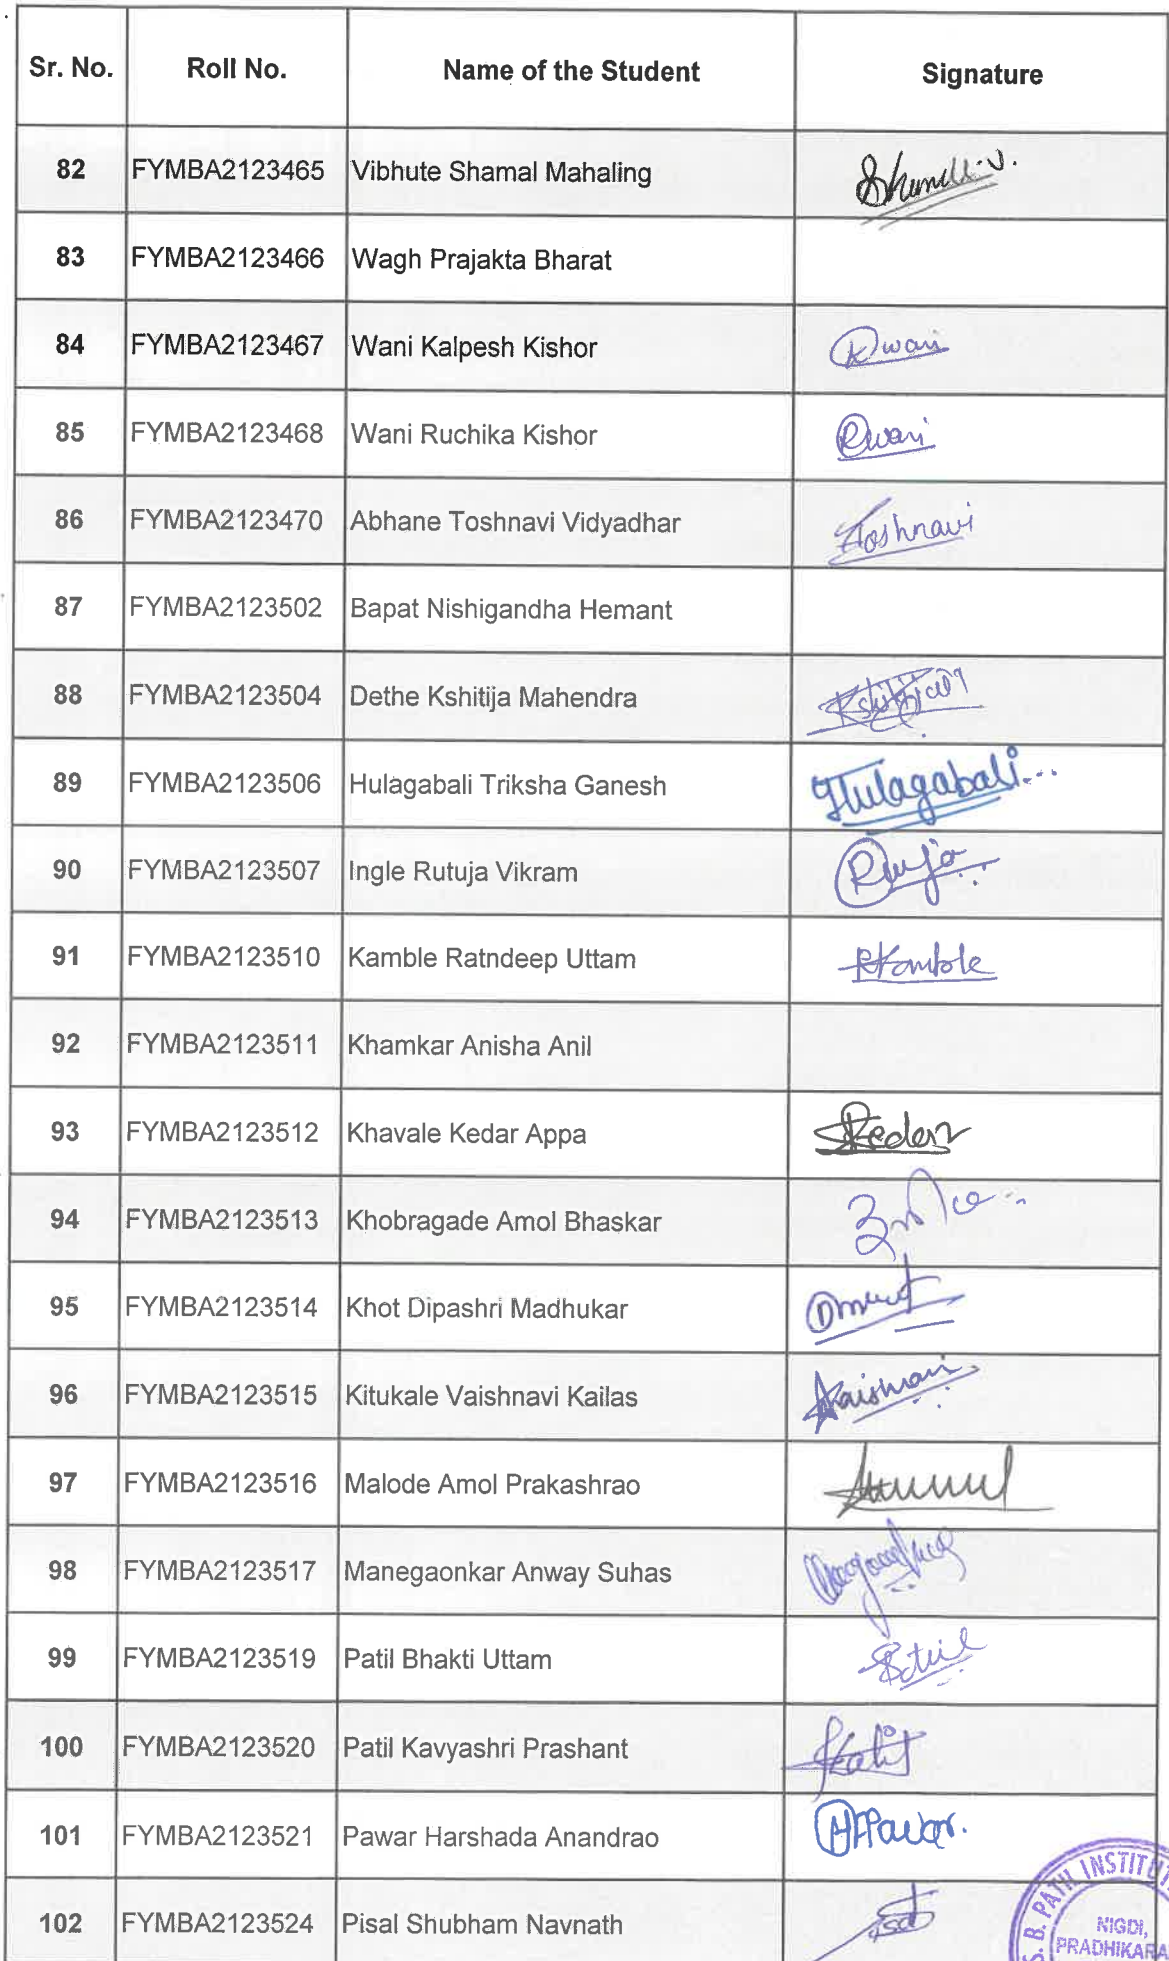 Sr. No. Roll No. Name of the Student Signature
82 FYMBA2123465 Vibhute Shamal Mahaling
83 FYMBA2123466 Wagh Prajakta Bharat
84 FYMBA2123467 Wani Kalpesh Kishor Kwani
85 FYMBA2123468 Wani Ruchika Kishor Rwani
86 FYMBA2123470 Abhane Toshnavi Vidyadhar Toshnavi
87 FYMBA2123502 Bapat Nishigandha Hemant
88 FYMBA2123504 Dethe Kshitija Mahendra
89 FYMBA2123506 Hulagabali Triksha Ganesh Hulagabali...
90 FYMBA2123507 Ingle Rutuja Vikram
91 FYMBA2123510 Kamble Ratndeep Uttam RKamble
92 FYMBA2123511 Khamkar Anisha Anil
93 FYMBA2123512 Khavale Kedar Appa Kedar
94 FYMBA2123513 Khobragade Amol Bhaskar
95 FYMBA2123514 Khot Dipashri Madhukar
96 FYMBA2123515 Kitukale Vaishnavi Kailas
97 FYMBA2123516 Malode Amol Prakashrao
98 FYMBA2123517 Manegaonkar Anway Suhas
99 FYMBA2123519 Patil Bhakti Uttam
100 FYMBA2123520 Patil Kavyashri Prashant
101 FYMBA2123521 Pawar Harshada Anandrao HAPawar.
102 FYMBA2123524 Pisal Shubham Navnath
S. B. PATIL INSTITU
NIGDI,
PRADHIKARA